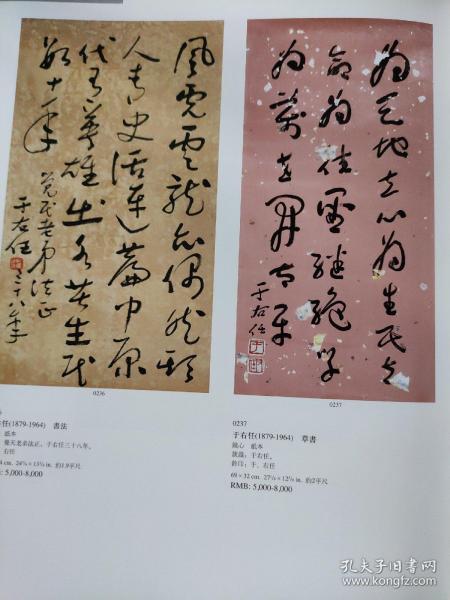 風虎雲龍亦偶然欺
人青史話連篇中原
代有英雄出各苦生民
數十年
老弟法正
于右任
三十八年
0236
任(1879-1964) 書法
紙本
老弟法正。于右任三十八年。
右任
cm. 24⅜ × 13⅜ in. 約1.9平尺
: 5,000-8,000
為天地立心為生民立
命為往聖繼絕學
為萬世開太平
于右任
0237
0237
于右任(1879-1964) 草書
鏡心 紙本
款識:于右任。
鈐印:于、右任
69 × 32 cm. 27⅛ × 12⅝ in. 約2平尺
RMB: 5,000-8,000
孔夫子旧书网
www.kongfz.com